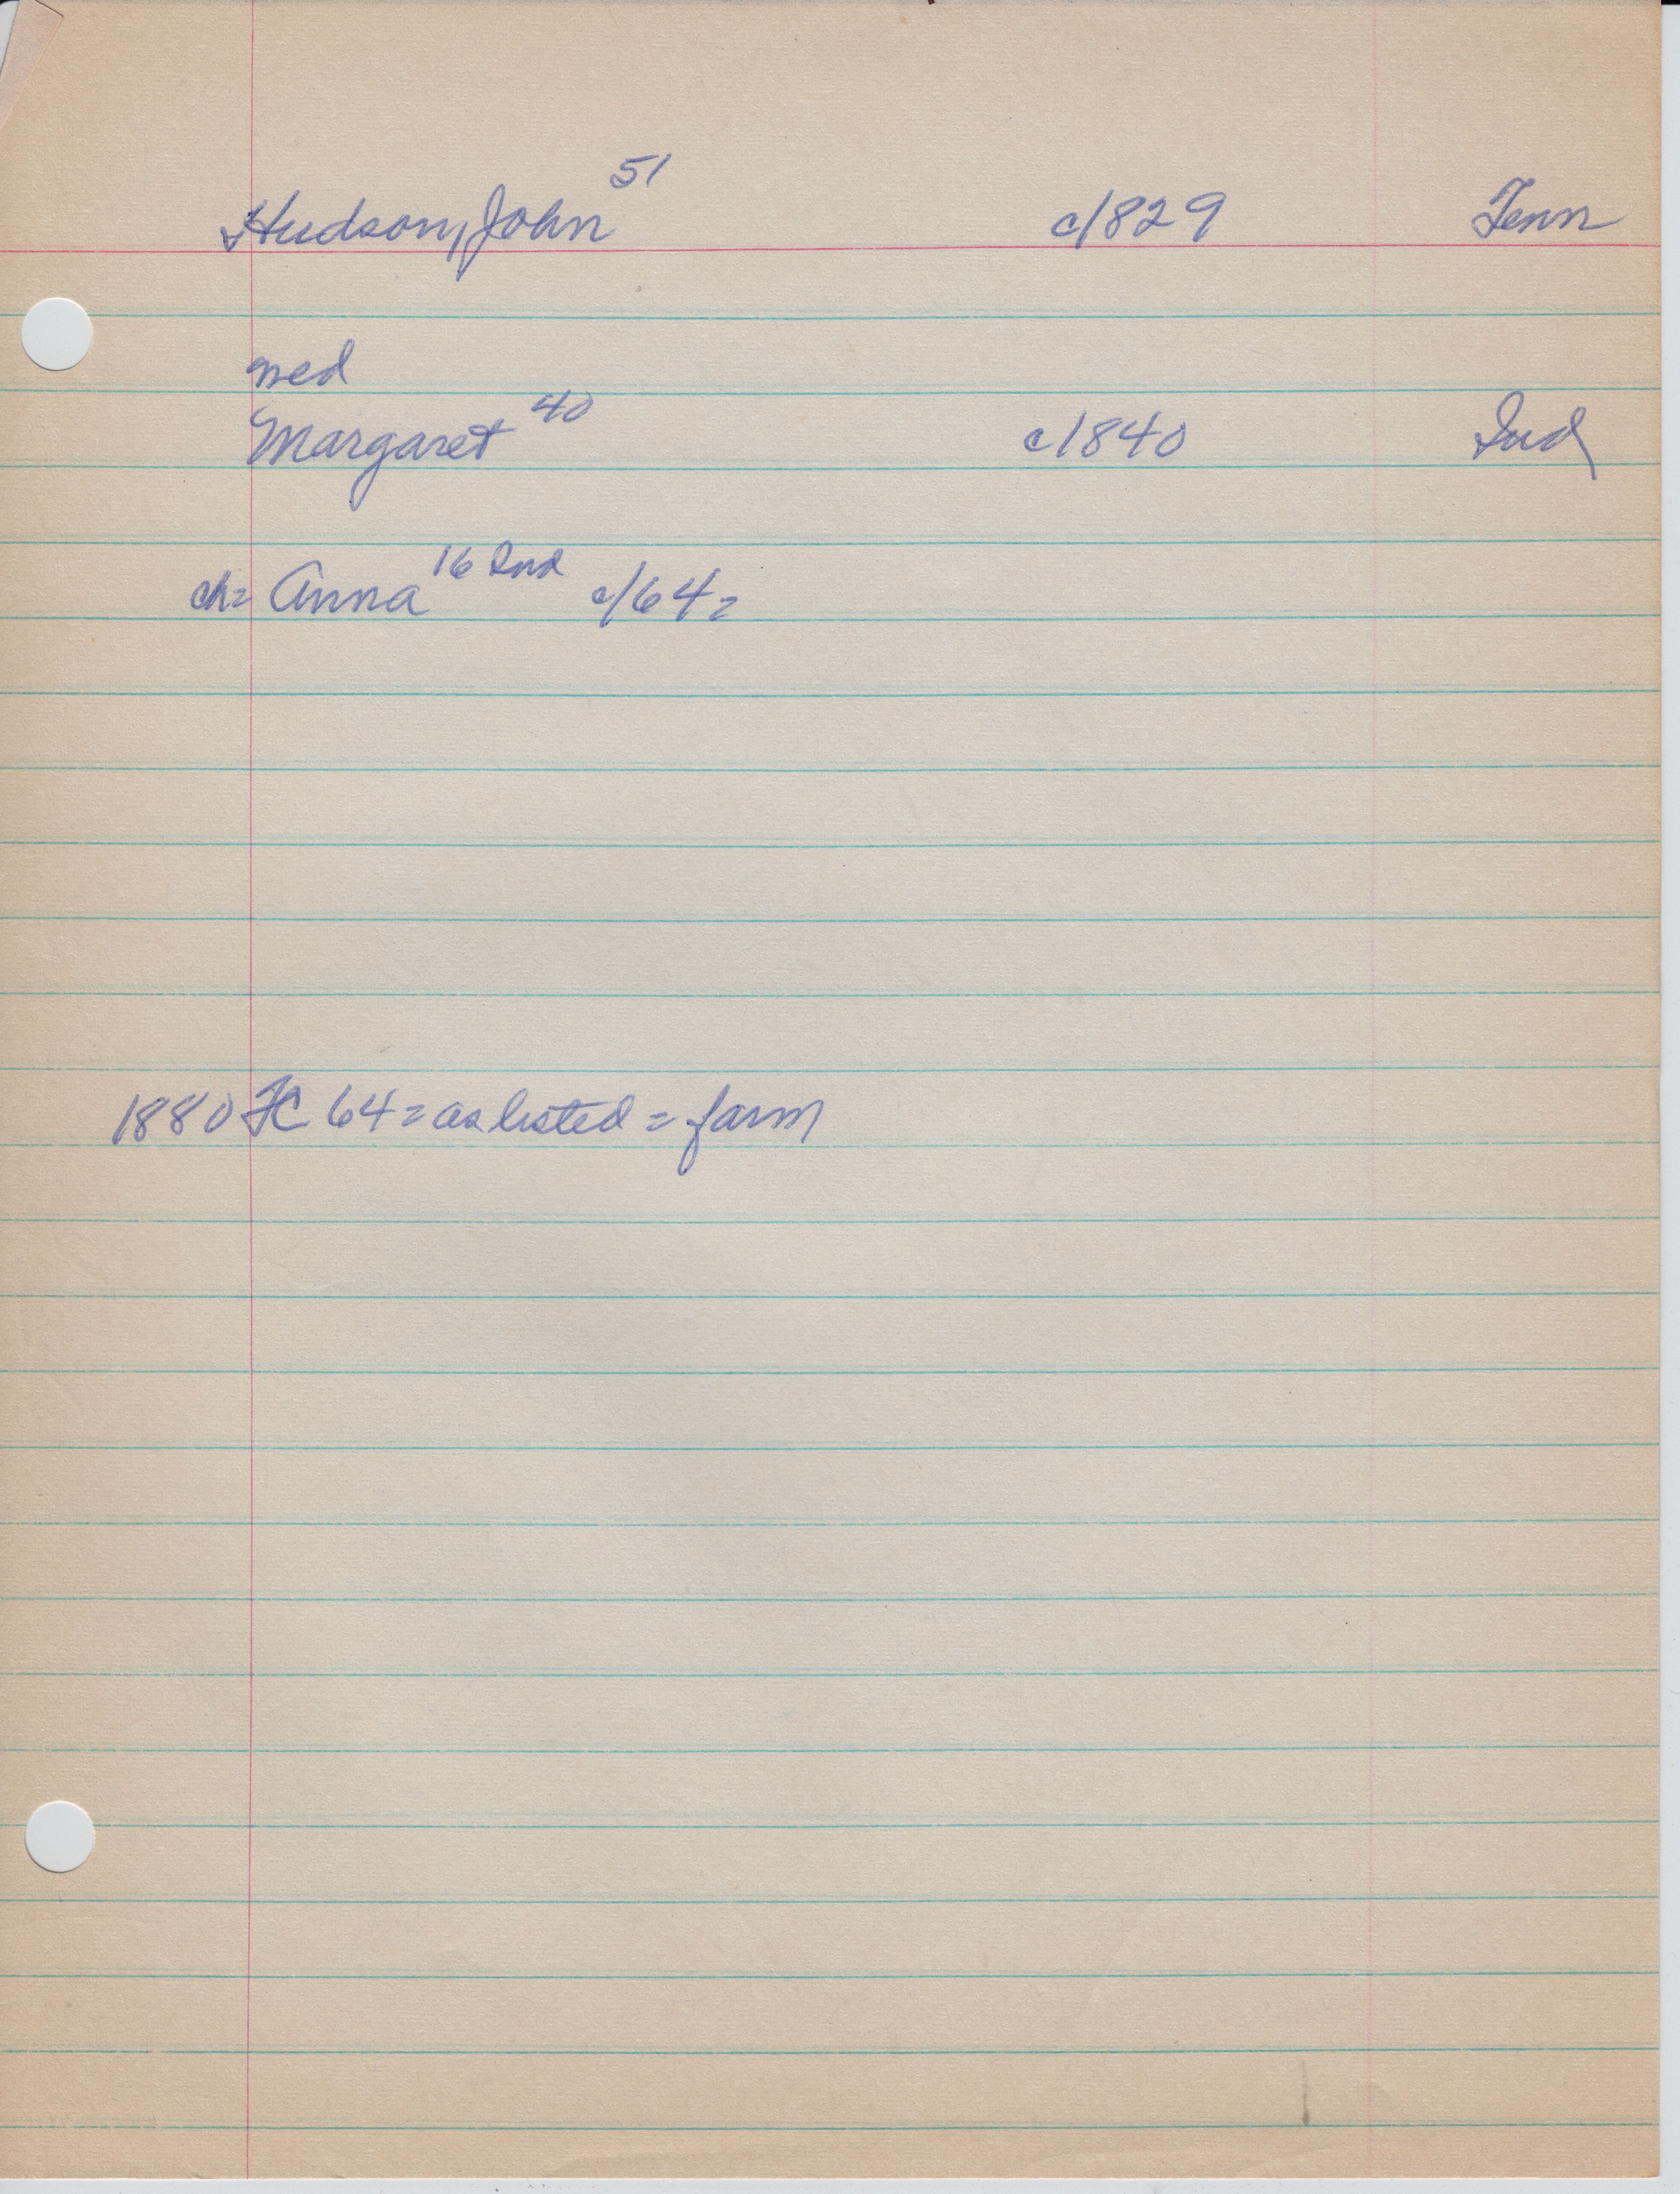 Hudson, John 51 c/829 Tenn
med
Margaret 40 c1840 Ind
ch= Anna 16 Ind c/64=
1880 FC 64= as listed = farm